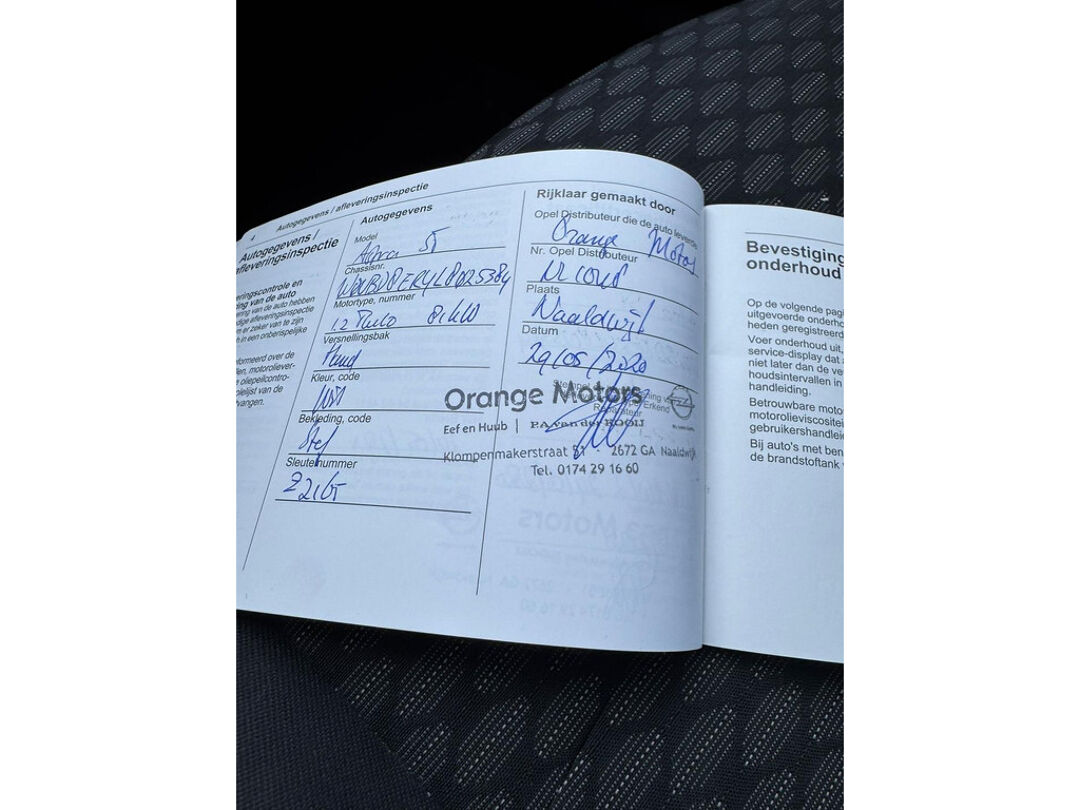 4
Autogegevens / afleveringsinspectie
Autogegevens /
afleveringsinspectie
eringscontrole en
ring van de auto
ering van de auto hebben
dige afleveringsinspectie
m er zeker van te zijn
h in een onberispelijke
formeerd over de
en, motoroliever-
oliepeilcontro-
pielijst van de
vangen.
Autogegevens
Model
Astra ST
Chassisnr.
Motortype, nummer
1.2 Turbo 81kW
Versnellingsbak
Hand
Kleur, code
Bekleding, code
Stof
Sleutelnummer
Rijklaar gemaakt door
Opel Distributeur die de auto leverde
Orange Motors
Nr. Opel Distributeur
Plaats
Naaldwijk
Datum
29/05/2020
Orange Motors
Eef en Huub | P.A. van der KOOIJ
Klompenmakerstraat 51 2672 GA Naaldwijk
Tel. 0174 29 16 60
Bevestiging
onderhoud
Op de volgende pagi
uitgevoerde onderho
heden geregistreerd
Voer onderhoud uit,
service-display dat a
niet later dan de ve
houdsintervallen in
handleiding.
Betrouwbare moto
motorolieviscositei
gebruikershandlei
Bij auto's met ben
de brandstoftank